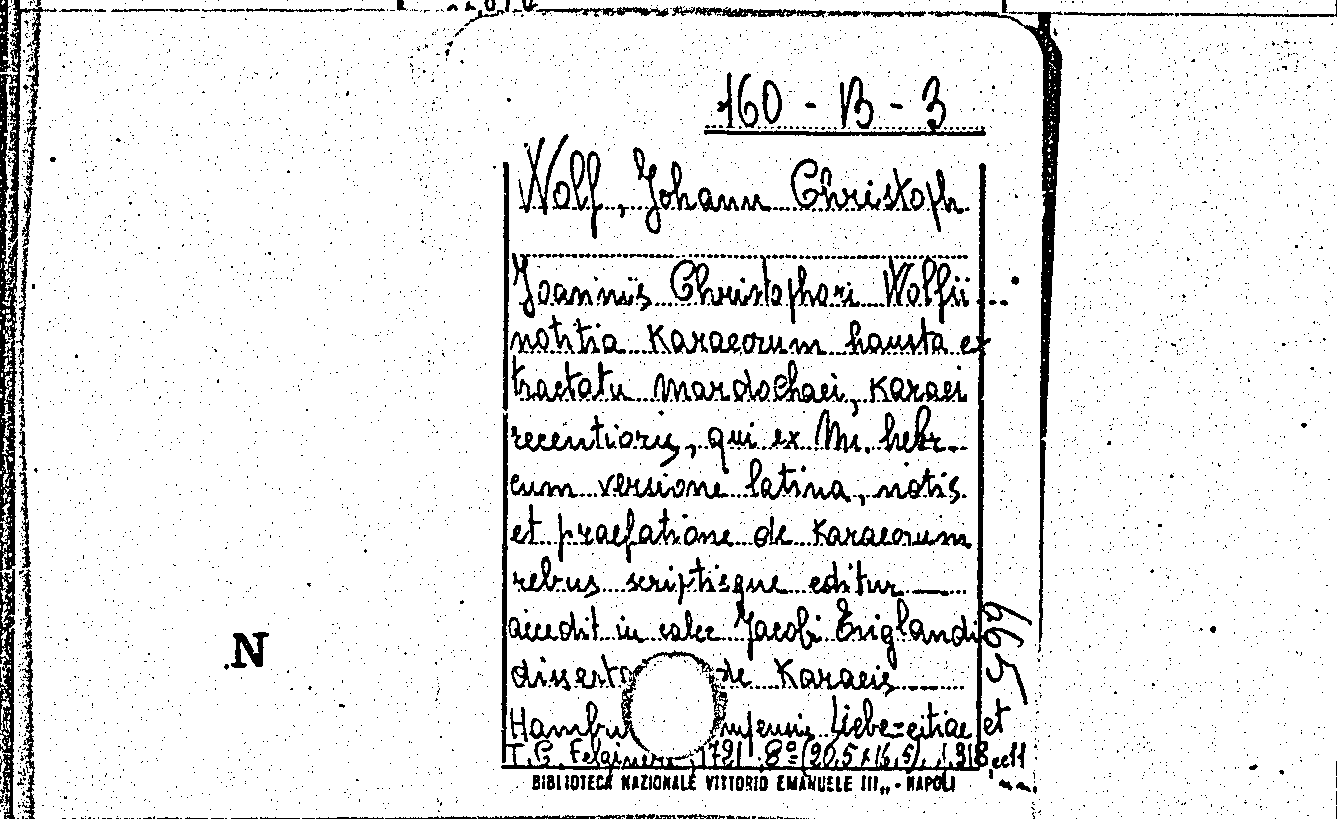 160 - B - 3
Wolf, Johann Christoph
Joannis Christophori Wolfii...
notitia Karaeorum hausta ex
tractatu Mardochaei, Karaei
recentioris, qui ex Ms. hebr.
cum versione latina, notis
et praefatione de Karaeorum
rebus scriptisque editur
accedit in calce Jacobi Triglandi
disserta de Karaeis
Hambu impensis Liebezeitiae et
T. C. Felginer 1721 8º (20,5 x 16,5)
BIBLIOTECA NAZIONALE VITTORIO EMANUELE III„ - NAPOLI
N